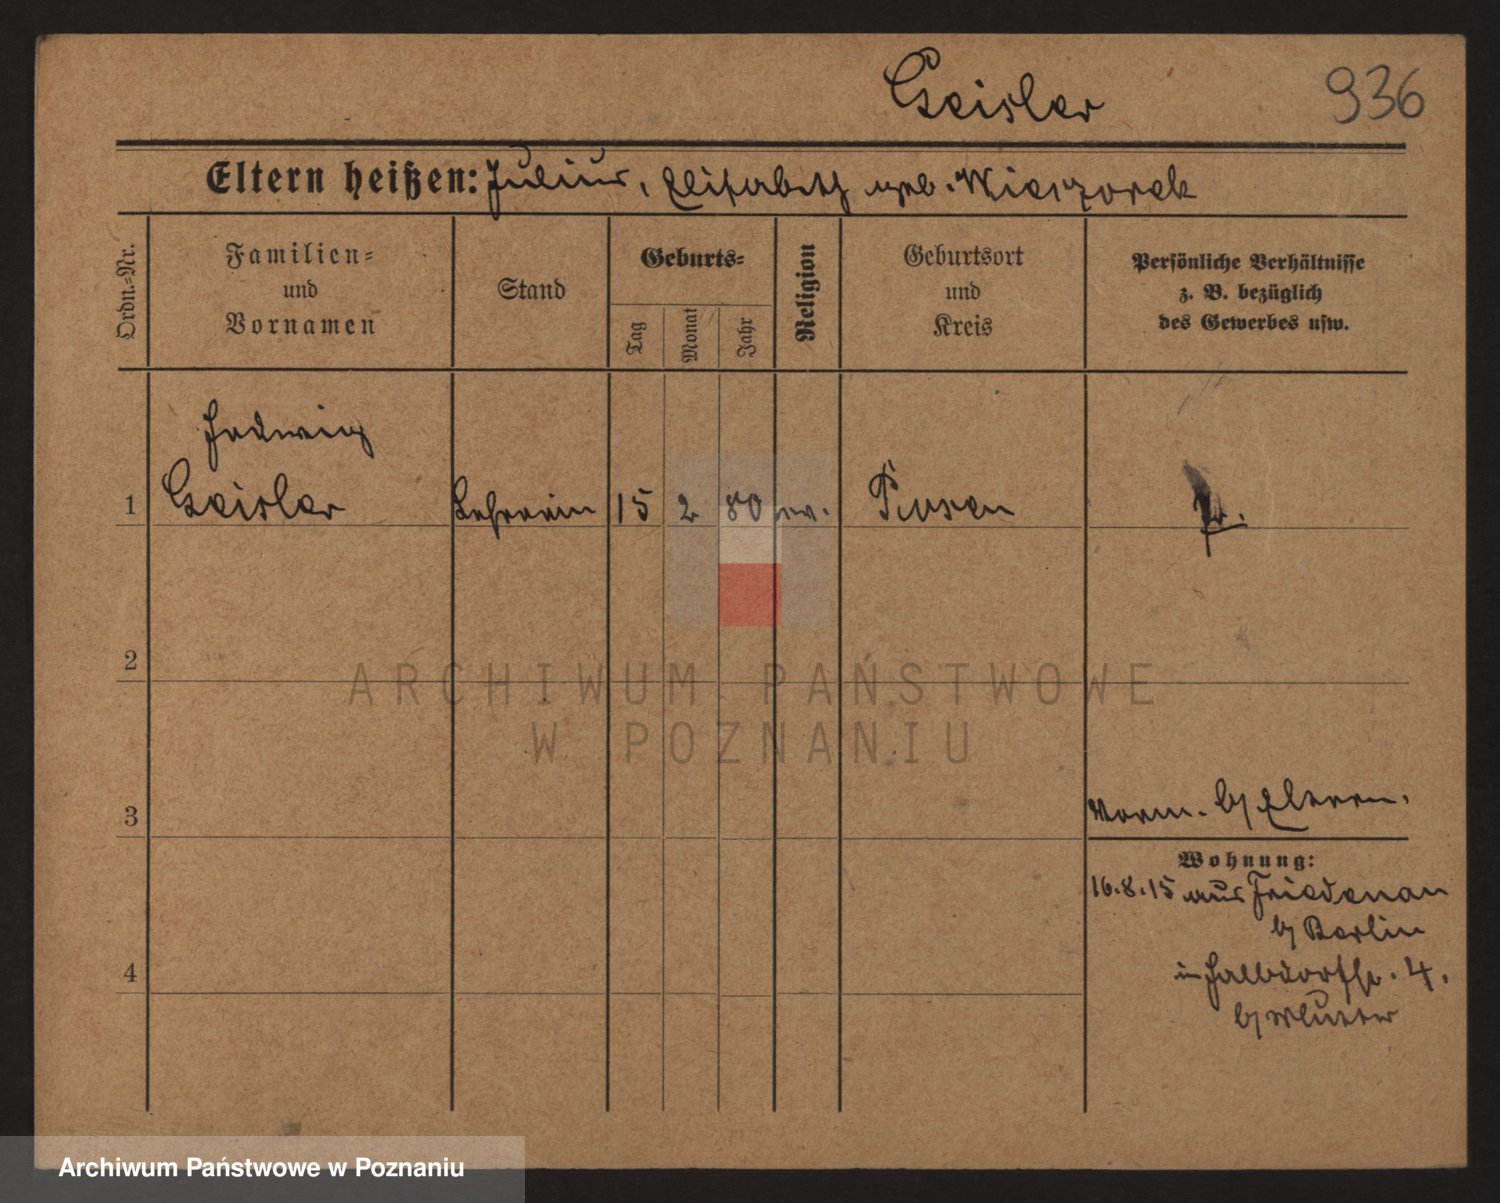 Geisler 936
Eltern heißen: Julius, Elisabeth geb. Wieczorek
Ordn.=Nr.
Familien=
und
Vornamen
Stand
Geburts=
Tag
Monat
Jahr
Religion
Geburtsort
und
Kreis
Persönliche Verhältnisse
z. B. bezüglich
des Gewerbes usw.
Hedwig
1 Geisler Lehrerin 15 2 80 ev. Posen
2
ARCHIWUM PAŃSTWOWE
W POZNANIU
3 Vorm. b/ Eltern.
Wohnung:
16.8.15 aus Friedenau
b/ Berlin
in Halbdorfstr. 4.
4
b/ Mutter
Archiwum Państwowe w Poznaniu